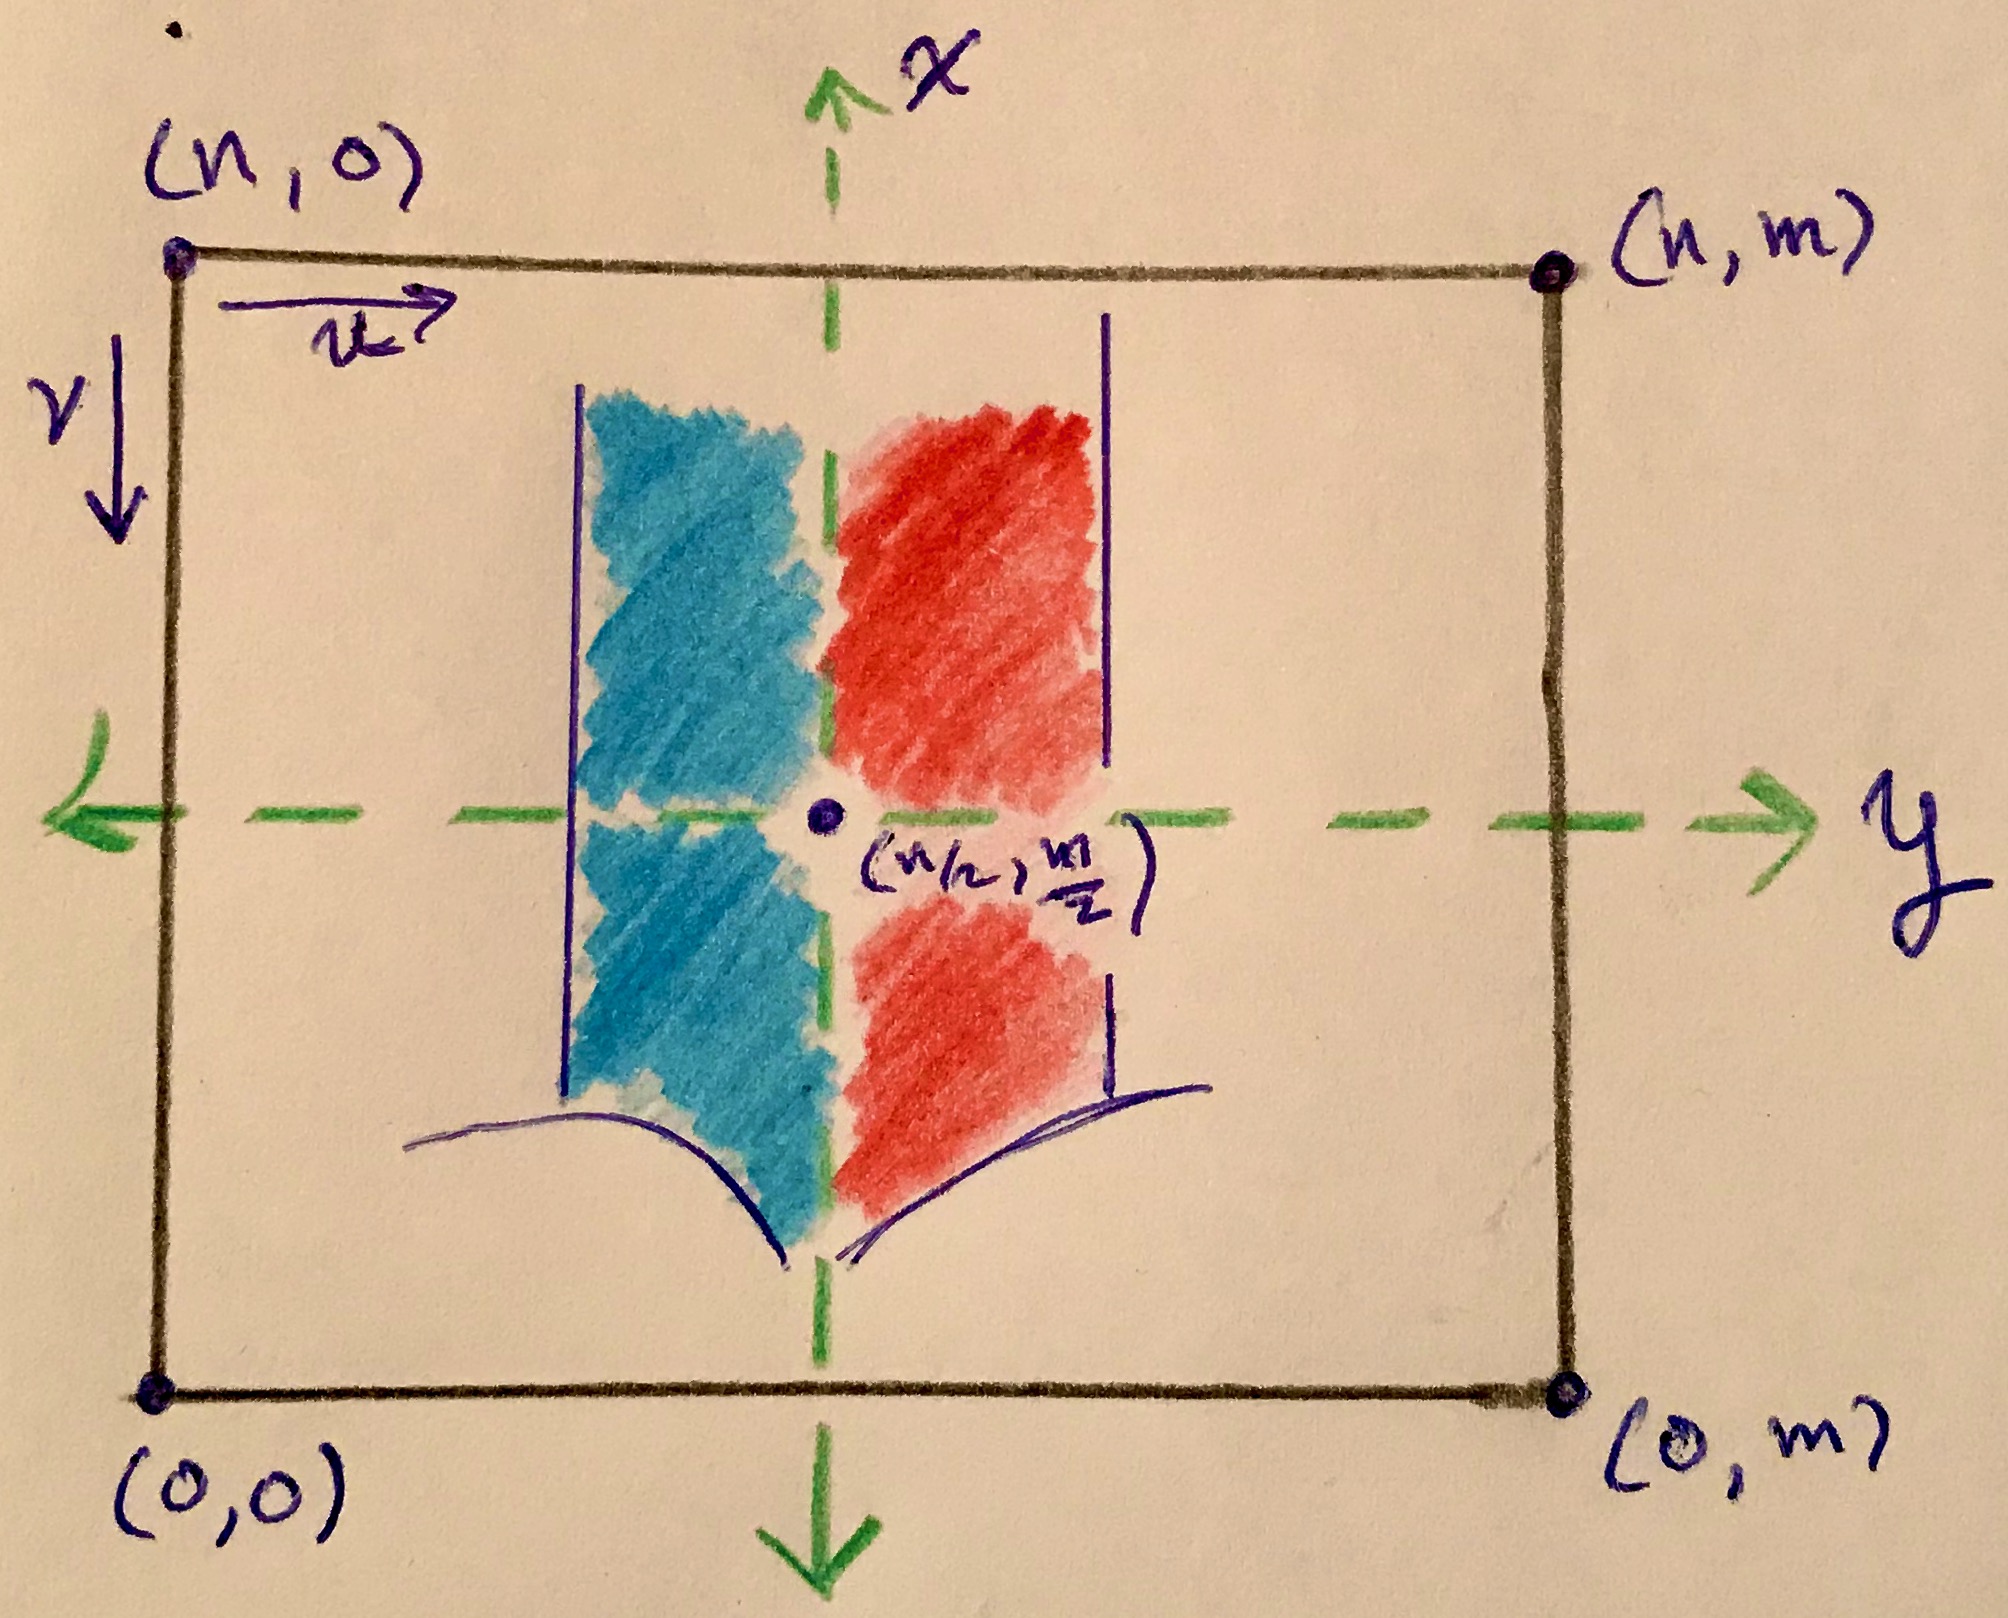 x
(n, 0)
(n, m)
u
v
y
(n/2, m/2)
(0,0)
(0, m)